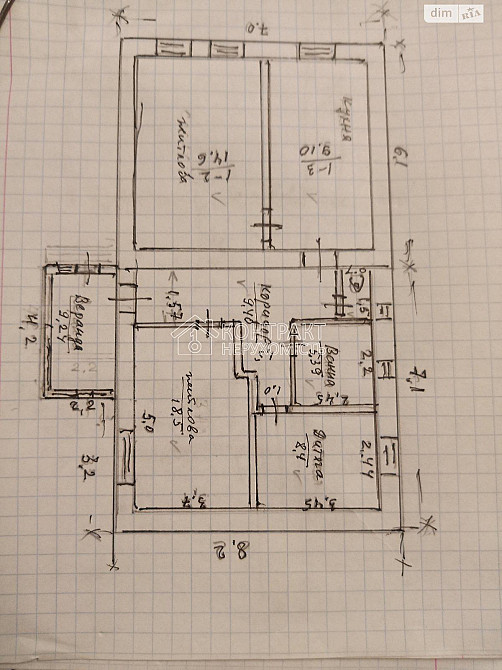 dim RIA
7.0
кухня
1-3
9.10
житлова
1-2
14.6
6,1
коридор
9,40
1,57
1,5
Веранда
9,24
2.2
4,2
КОНТРАКТ
НЕРУХОМІСТЬ
Ванна
5,39
2,2
2,45
1.0
7,1
житлова
18,5
5,0
Дитяча
8,4
2,44
3,2
3,7
3,45
8,2